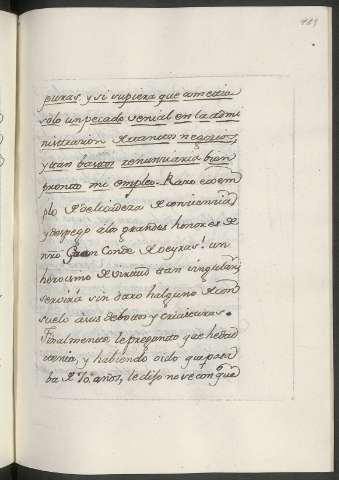 puras y si supiera que cometia
solo un pecado venial en la admi
nistracion de tantos negocios,
y tan bastos renunciaria bien
pronto mi empleo. Raro exem
plo de delicadeza de conciencia
y despego a los grandes honores de
nro Gran Conde de Oeyras! un
heroismo de virtud tan singular,
servirá sin daxo halguno de con
suelo á sus debotos y criaturas.
Finalmente le pregunto que hedad
tenia, y habiendo oido que pasa
ba de 70. años, le dijo no ve con qe